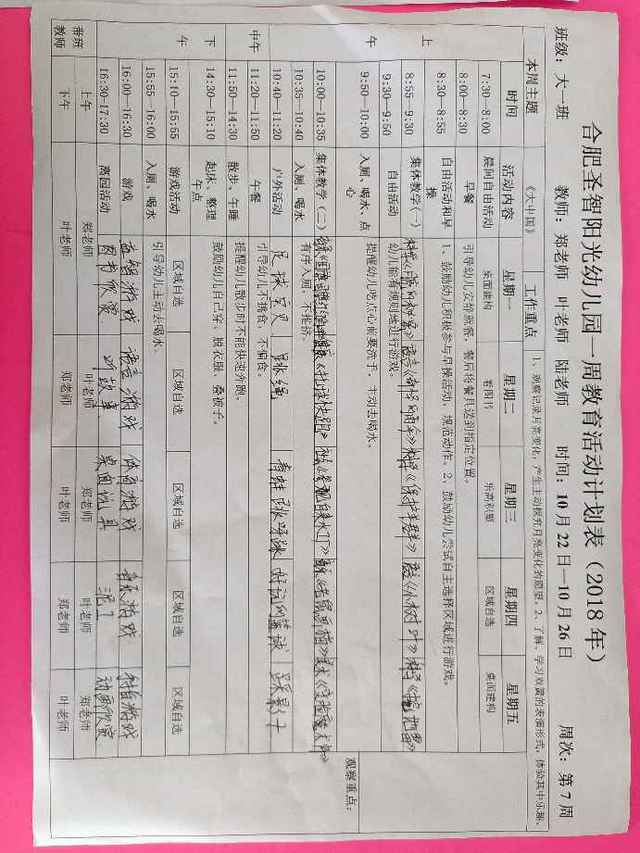 合肥圣智阳光幼儿园一周教育活动计划表（2018 年）
班级：大一班 教师：郑老师 叶老师 陆老师 时间：10 月 22 日—10 月 26 日 周次：第 7 周
本周主题 《大中国》 工作重点 1、观察记录月亮变化，产生主动探究月亮变化的愿望。2、了解、学习双簧的表演形式，体验其中乐趣。
时间 活动内容 星期一 星期二 星期三 星期四 星期五
上午
7:30—8:00 晨间自由活动 桌面建构 看图书 乐高积塑 区域自选 桌面建构
8:00—8:30 早餐 引导幼儿安静就餐，餐后将餐具送到指定位置。
8:30—8:55 自由活动和早操 1、鼓励幼儿积极参与早操活动，规范动作。2、鼓励幼儿尝试自主选择区域进行游戏。
8:55—9:30 集体教学（一） 《保护手群》 《小树叶》
9:30—9:50 自由活动 幼儿能看规则地进行游戏。
9:50—10:00 入厕、喝水、点心 提醒幼儿吃点心前要洗手，主动去喝水。
10:00—10:35 集体教学（二）
10:35—10:40 入厕、喝水 有序入厕，不推挤。
10:40—11:20 户外活动 足球宝贝 跳绳 青蛙跳呀跳 好玩的篮球
中午
11:20—11:50 午餐 引导幼儿不挑食，不偏食。
11:50—14:30 散步、午睡 提醒幼儿散步时不能快速奔跑。
下午
14:30—15:10 起床、整理 午点 鼓励幼儿自己穿、脱衣服，叠被子。
15:10—15:55 游戏活动 区域自选 区域自选 区域自选 区域自选 区域自选
15:55—16:00 入厕、喝水 引导幼儿主动去喝水。
16:00—16:30 游戏 益智游戏 语言游戏 体育游戏 音乐游戏
16:30—17:30 离园活动 图书欣赏 听故事 桌面玩具 泥工 动画欣赏
带班教师 上午 郑老师 叶老师 郑老师 叶老师 郑老师
下午 叶老师 郑老师 叶老师 郑老师 叶老师
观察重点：